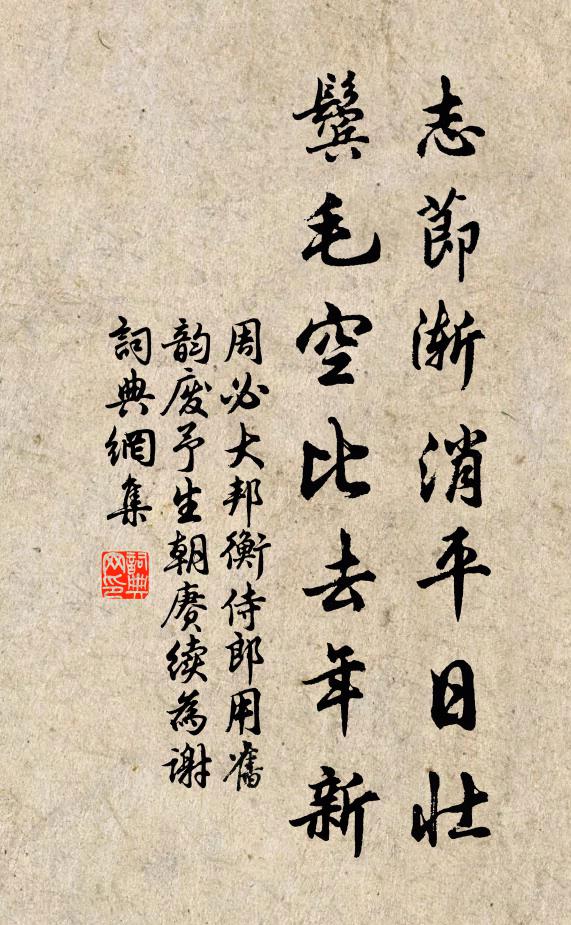 志節漸消平日壯
鬓毛空比去年新
周必大邦衡侍郎用舊
韵庆予生朝赓续為谢
詞典網集
詞典网印